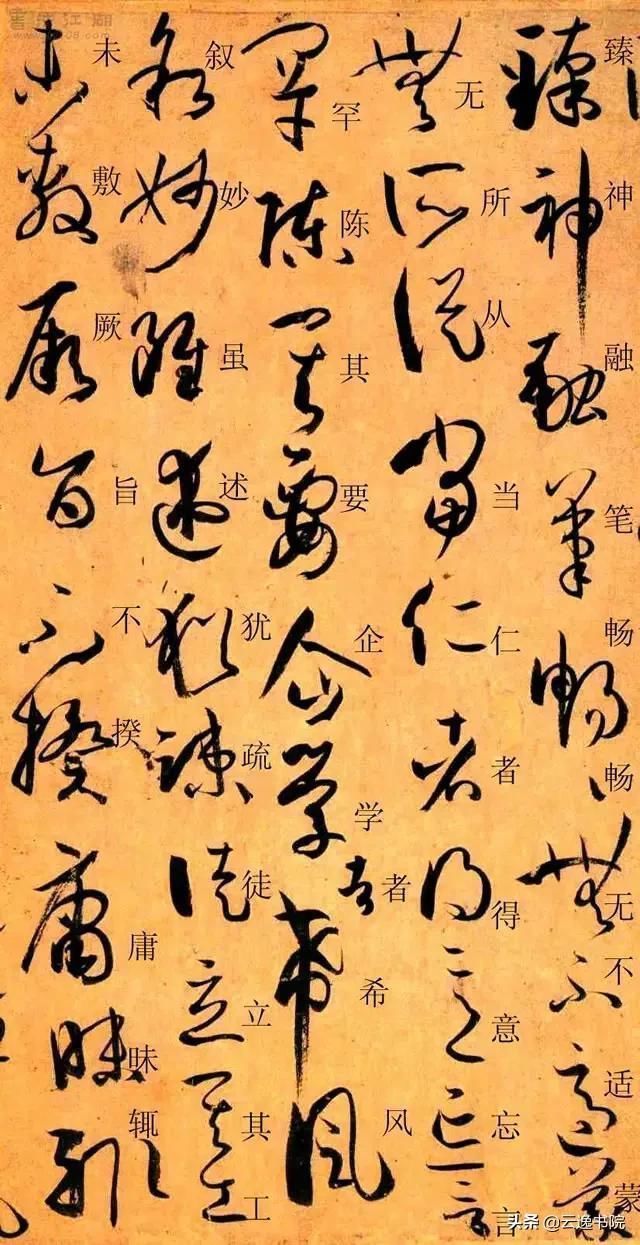 臻神融笔畅畅无不适蒙
无所从当仁者得意忘言
罕陈其要企学者希风
叙妙虽述犹疏徒立其工
未敷厥旨不揆庸昧辄
头条 @云逸书院